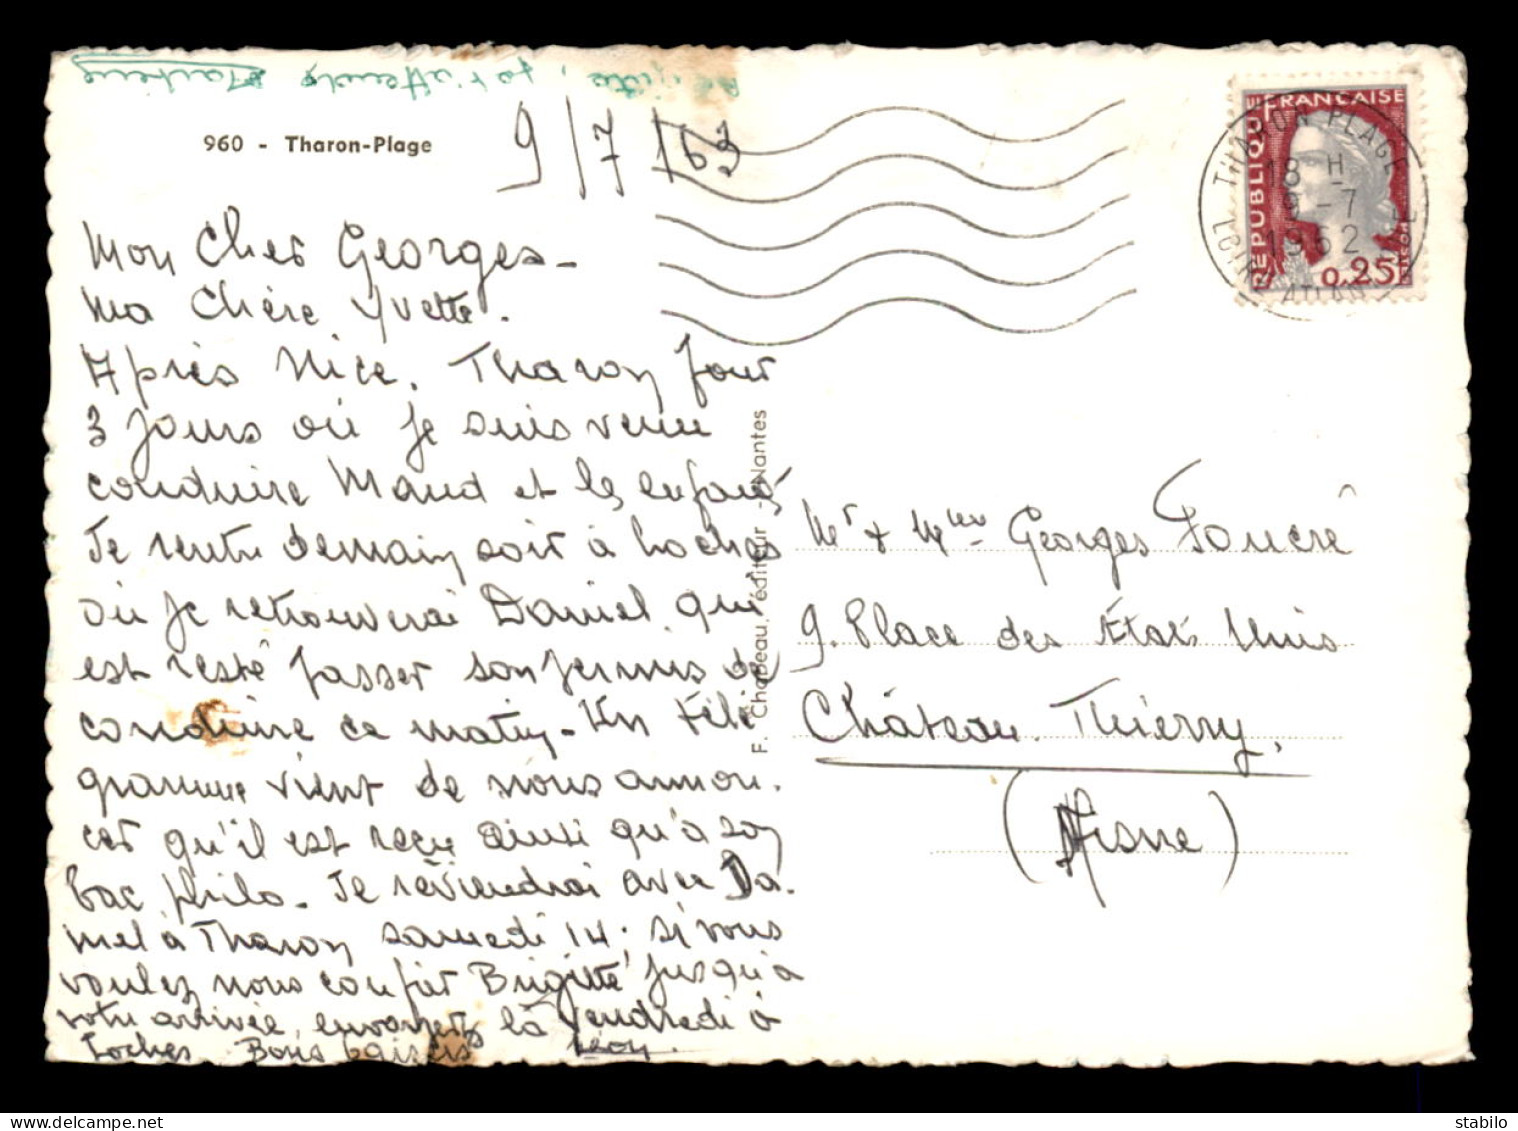 Brigitte, je t'attends Martine
960 - Tharon-Plage
9/7/63
Mon Cher Georges -
Ma Chère Yvette.
Après Nice. Tharon pour
3 jours où je suis venu
conduire Maud et les enfants
Je rentre demain soir à Loches
où je retrouverai Daniel qui
est resté passer son permis de
conduire ce matin - Un télé
gramme vient de nous annon.
cer qu'il est reçu ainsi qu'à son
bac philo. Je reviendrai avec Da.
niel à Tharon samedi 14; si vous
voulez nous confier Brigitte jusqu'à
votre arrivée, envoyez la vendredi à
Loches. Bons baisers Léon.
F. Chapeau, éditeur - Nantes
REPUBLIQUE FRANÇAISE
0,25F
THARON PLAGE
18 H
9 - 7
1962
LOIRE ATLANT
Mr & Mme Georges Foucré
9. Place des États Unis
Château. Thierry.
(Aisne)
stabilo
delcampe.net